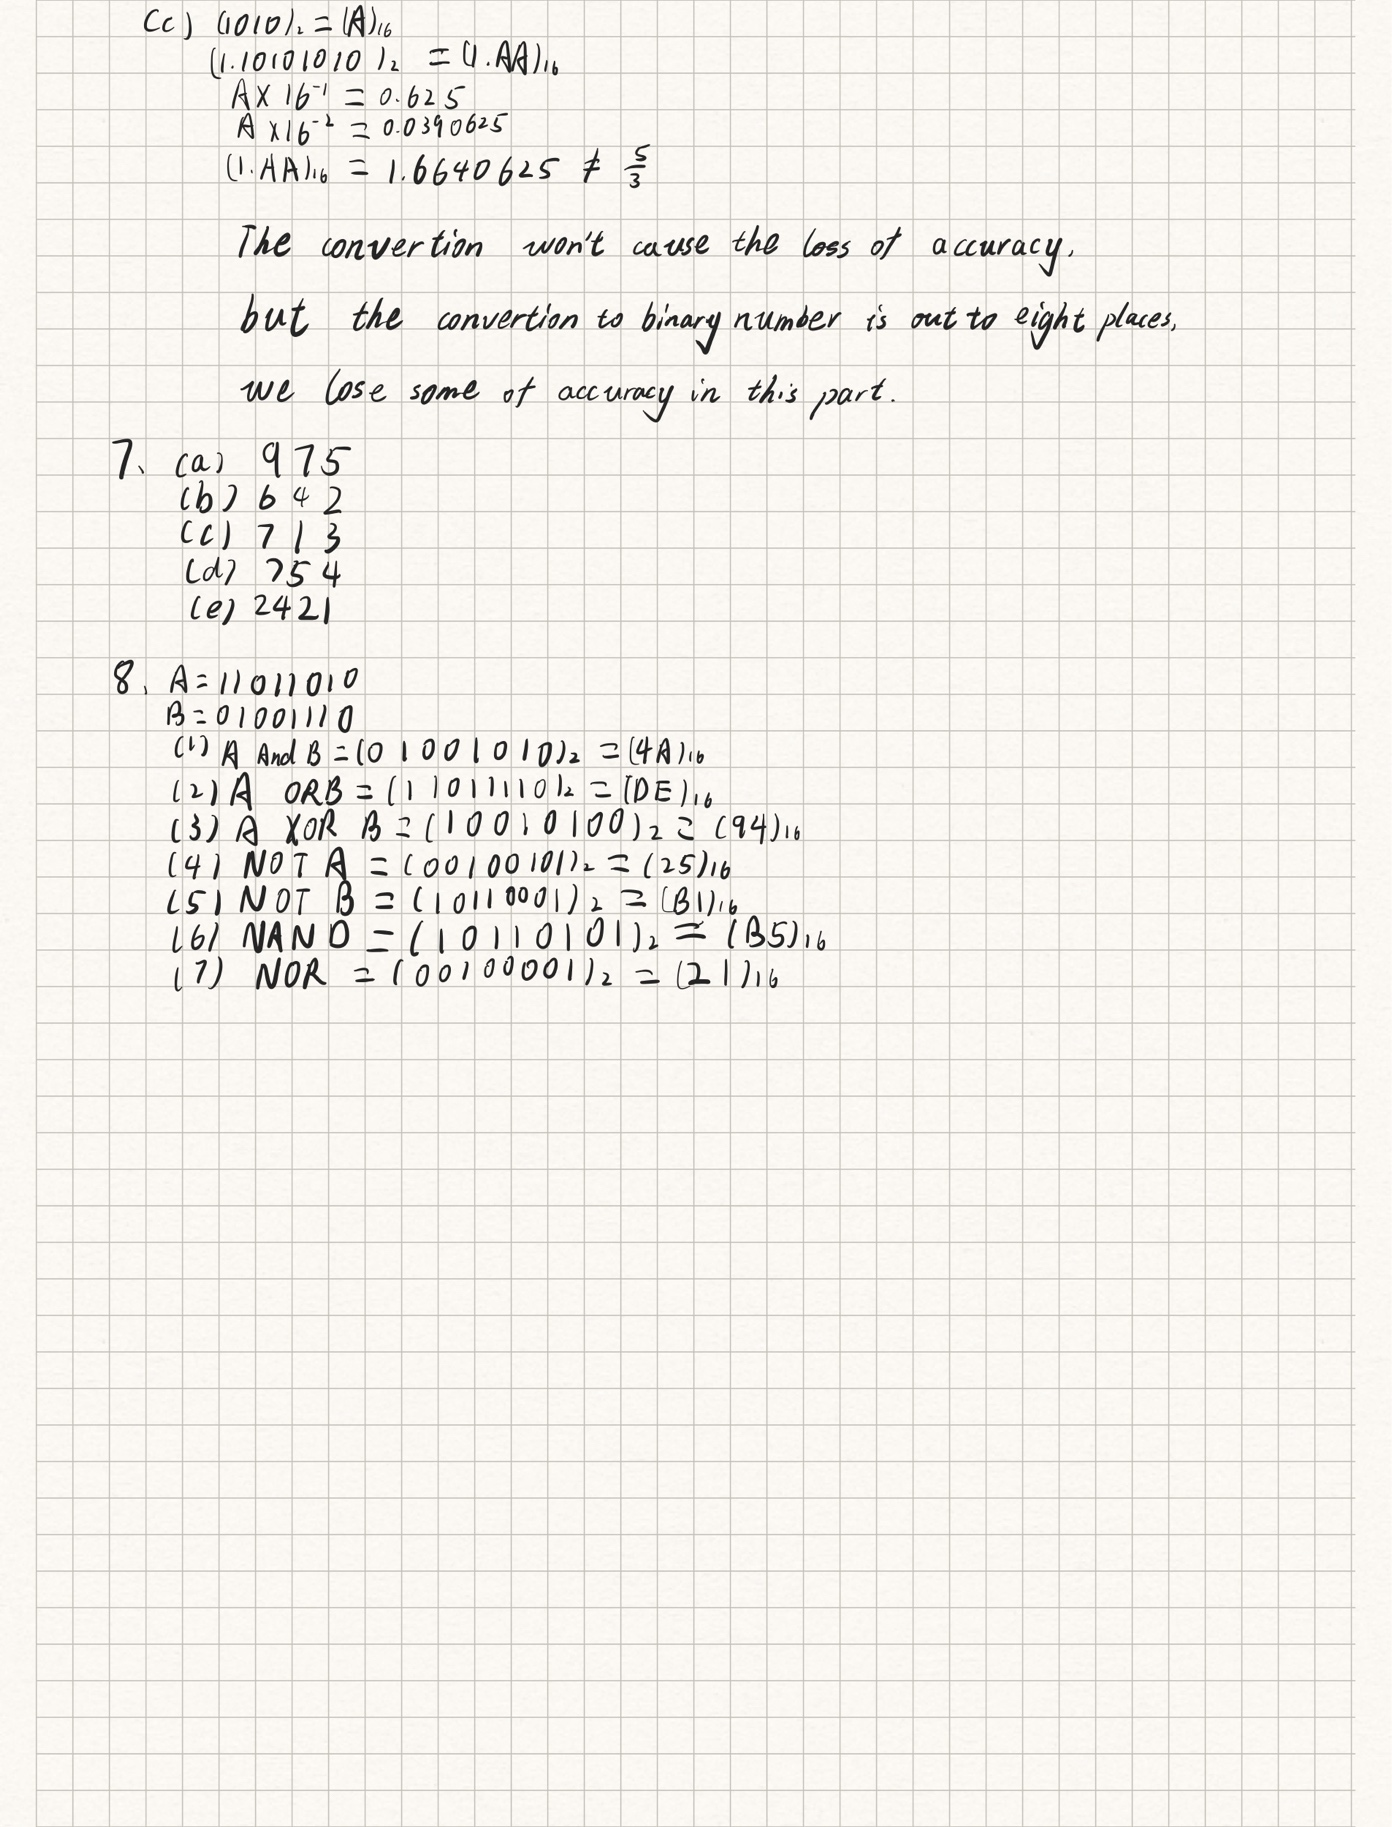 (c) (1010)₂ = (A)₁₆
(1.10101010)₂ = (1.AA)₁₆
A × 16⁻¹ = 0.625
A × 16⁻² = 0.0390625
(1.AA)₁₆ = 1.6640625 ≠ 5/3
The convertion won't cause the loss of accuracy,
but the convertion to binary number is out to eight places,
we lose some of accuracy in this part.
7、(a) 975
(b) 642
(c) 713
(d) 754
(e) 2421
8、A = 11011010
B = 01001110
(1) A And B = (01001010)₂ = (4A)₁₆
(2) A OR B = (11011110)₂ = (DE)₁₆
(3) A XOR B = (10010100)₂ = (94)₁₆
(4) NOT A = (00100101)₂ = (25)₁₆
(5) NOT B = (10110001)₂ = (B1)₁₆
(6) NAND = (10110101)₂ = (B5)₁₆
(7) NOR = (00100001)₂ = (21)₁₆